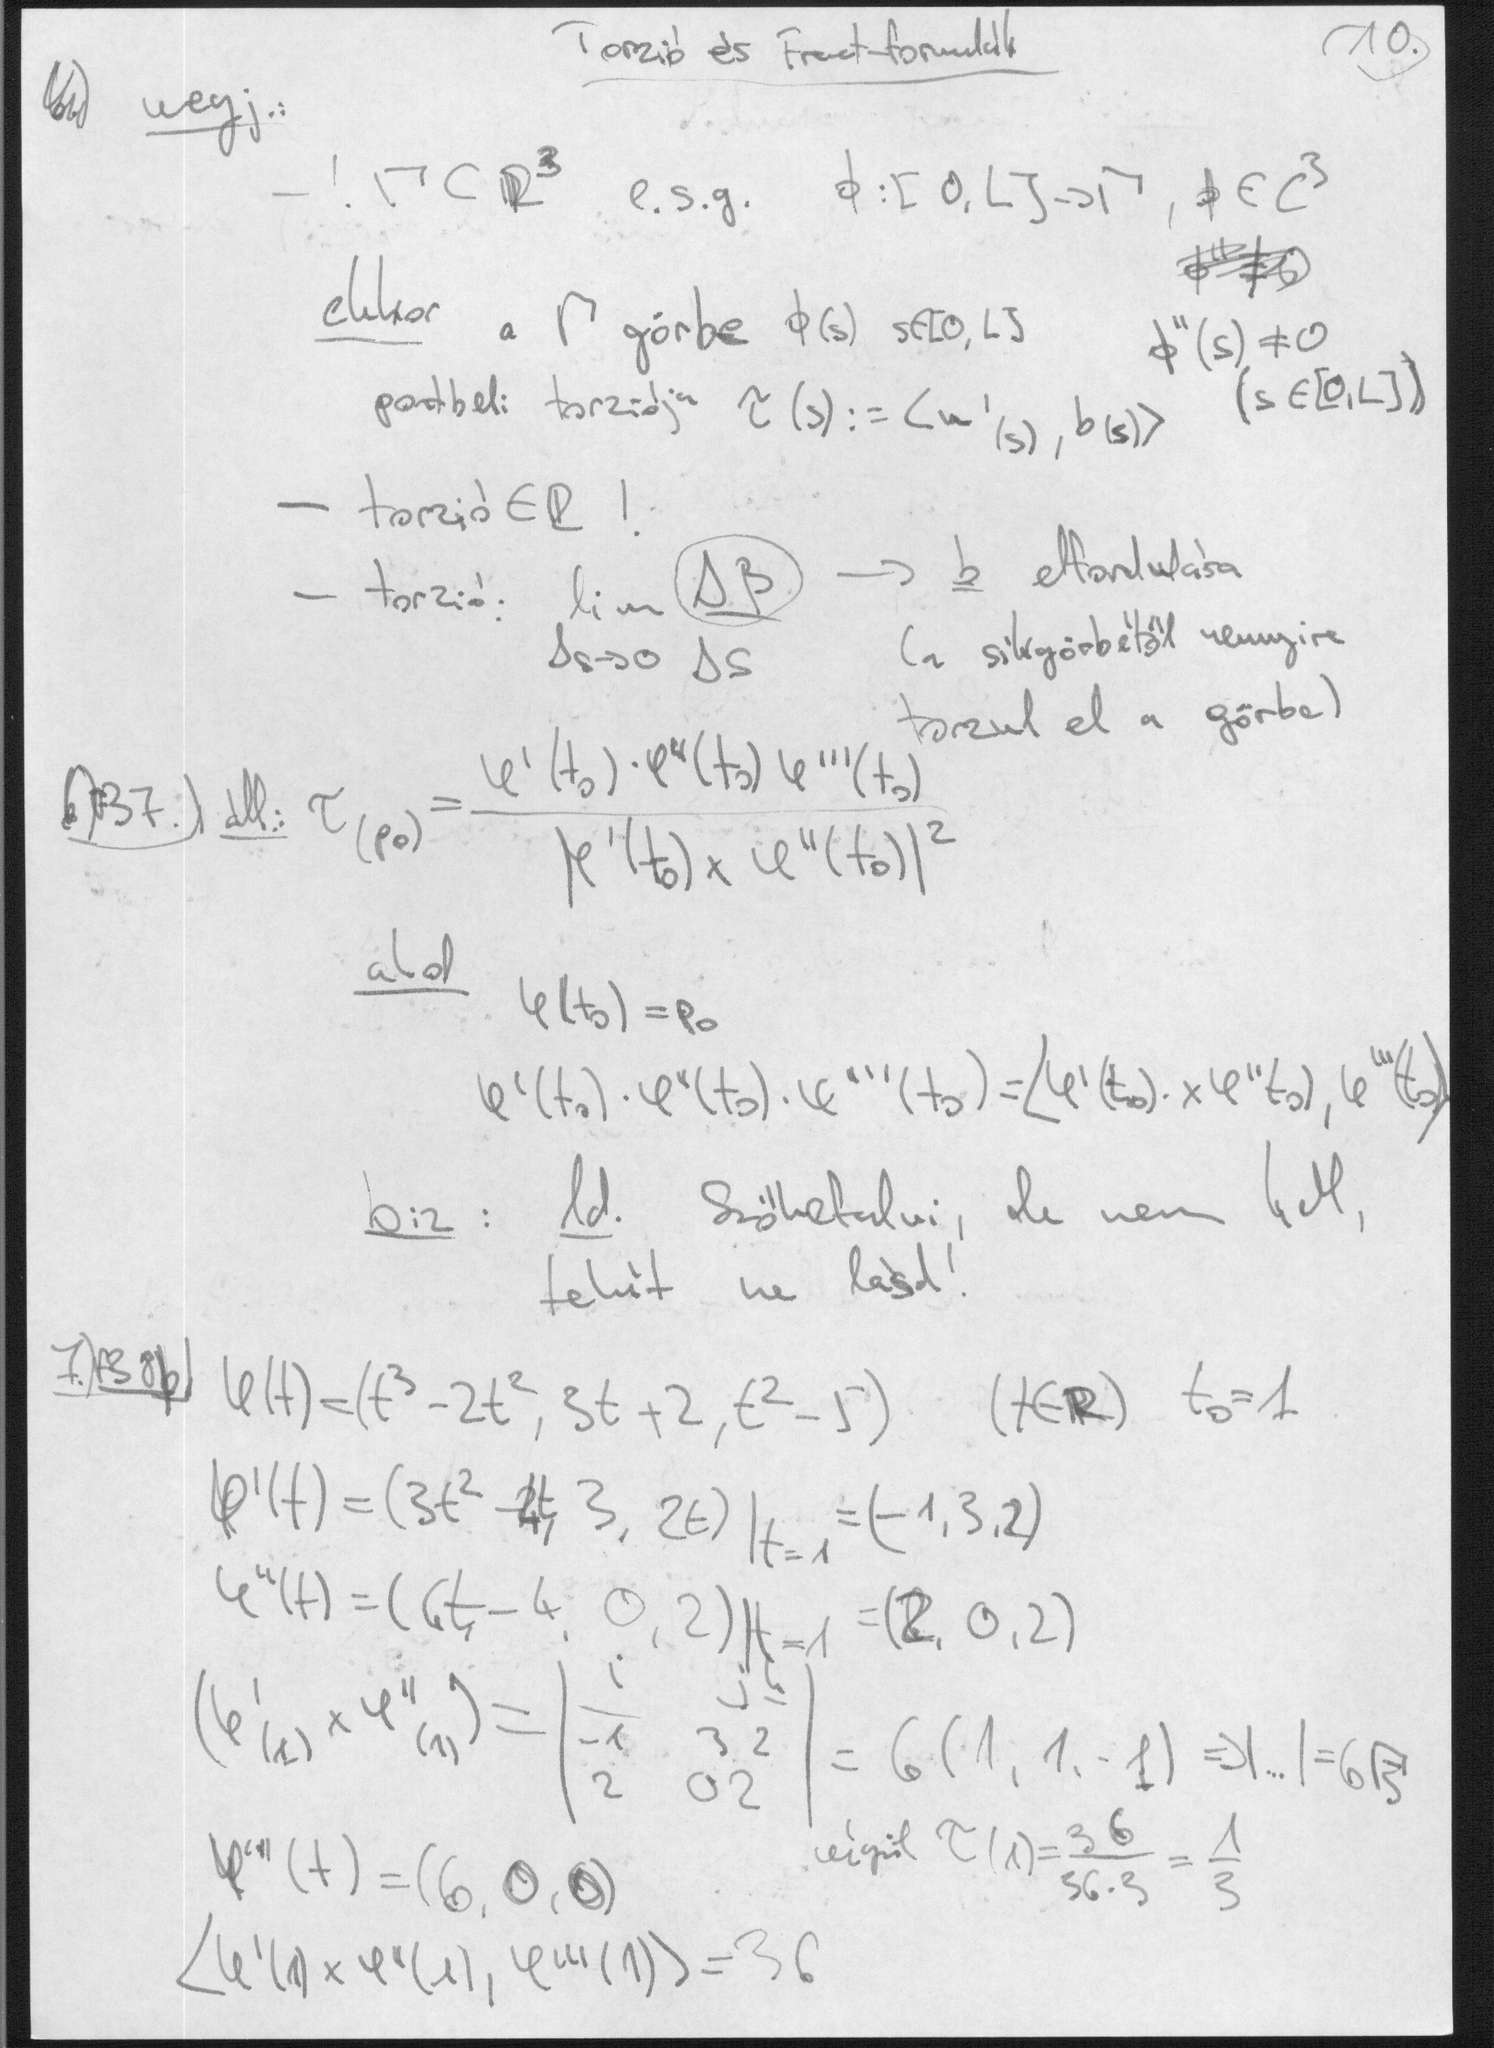 Torzió és Frenet-formulák
10.
megj.:
- ! Γ ⊂ R³ e.s.g. ϕ:[0,L]→Γ, ϕ∈C³
ekkor a Γ görbe ϕ(s) s∈[0,L]
ϕ''(s) ≠ 0
pontbeli torziója τ(s) := <n'(s), b(s)>
(s∈[0,L])
- torzió ∈ R !
- torzió: lim Δβ → b elfordulása
Δs→0 Δs (a síkgörbétől mennyire
torzul el a görbe)
6.)137.) áll.: τ(p₀) = φ'(t₀)·φ''(t₀) φ'''(t₀)
|φ'(t₀) × φ''(t₀)|²
ahol
φ(t₀) = p₀
φ'(t₀)·φ''(t₀)·φ'''(t₀) = <φ'(t₀)·×φ''t₀), φ'''(t₀)>
biz: ld. Szőkefalvi, de nem kell,
tehát ne lásd!
7.) φ(t) = (t³-2t², 3t+2, t²-5) (t∈R) t₀=1
φ'(t) = (3t²-4t, 3, 2t)|t=1 = (-1,3,2)
φ''(t) = (6t-4, 0, 2)|t=1 = (2, 0, 2)
(φ'(1) × φ''(1)) = | i j k
-1 3 2
2 0 2 | = 6(1, 1, -1) ⇒ |...| = 6√3
φ'''(t) = (6, 0, 0)
végül τ(1) = 36/36·3 = 1/3
<φ'(1) × φ''(1), φ'''(1)> = 36